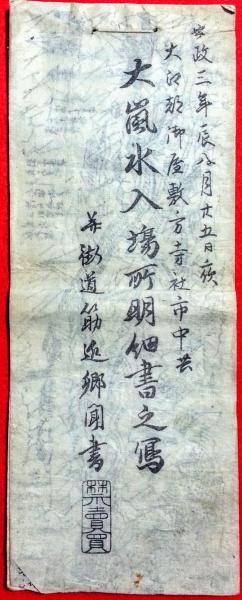 安政三年辰八月廿五日夜
大江都御屋敷方寺社市中共
大嵐水入場所明細書之写
并街道筋近郷聞書
禁賣買